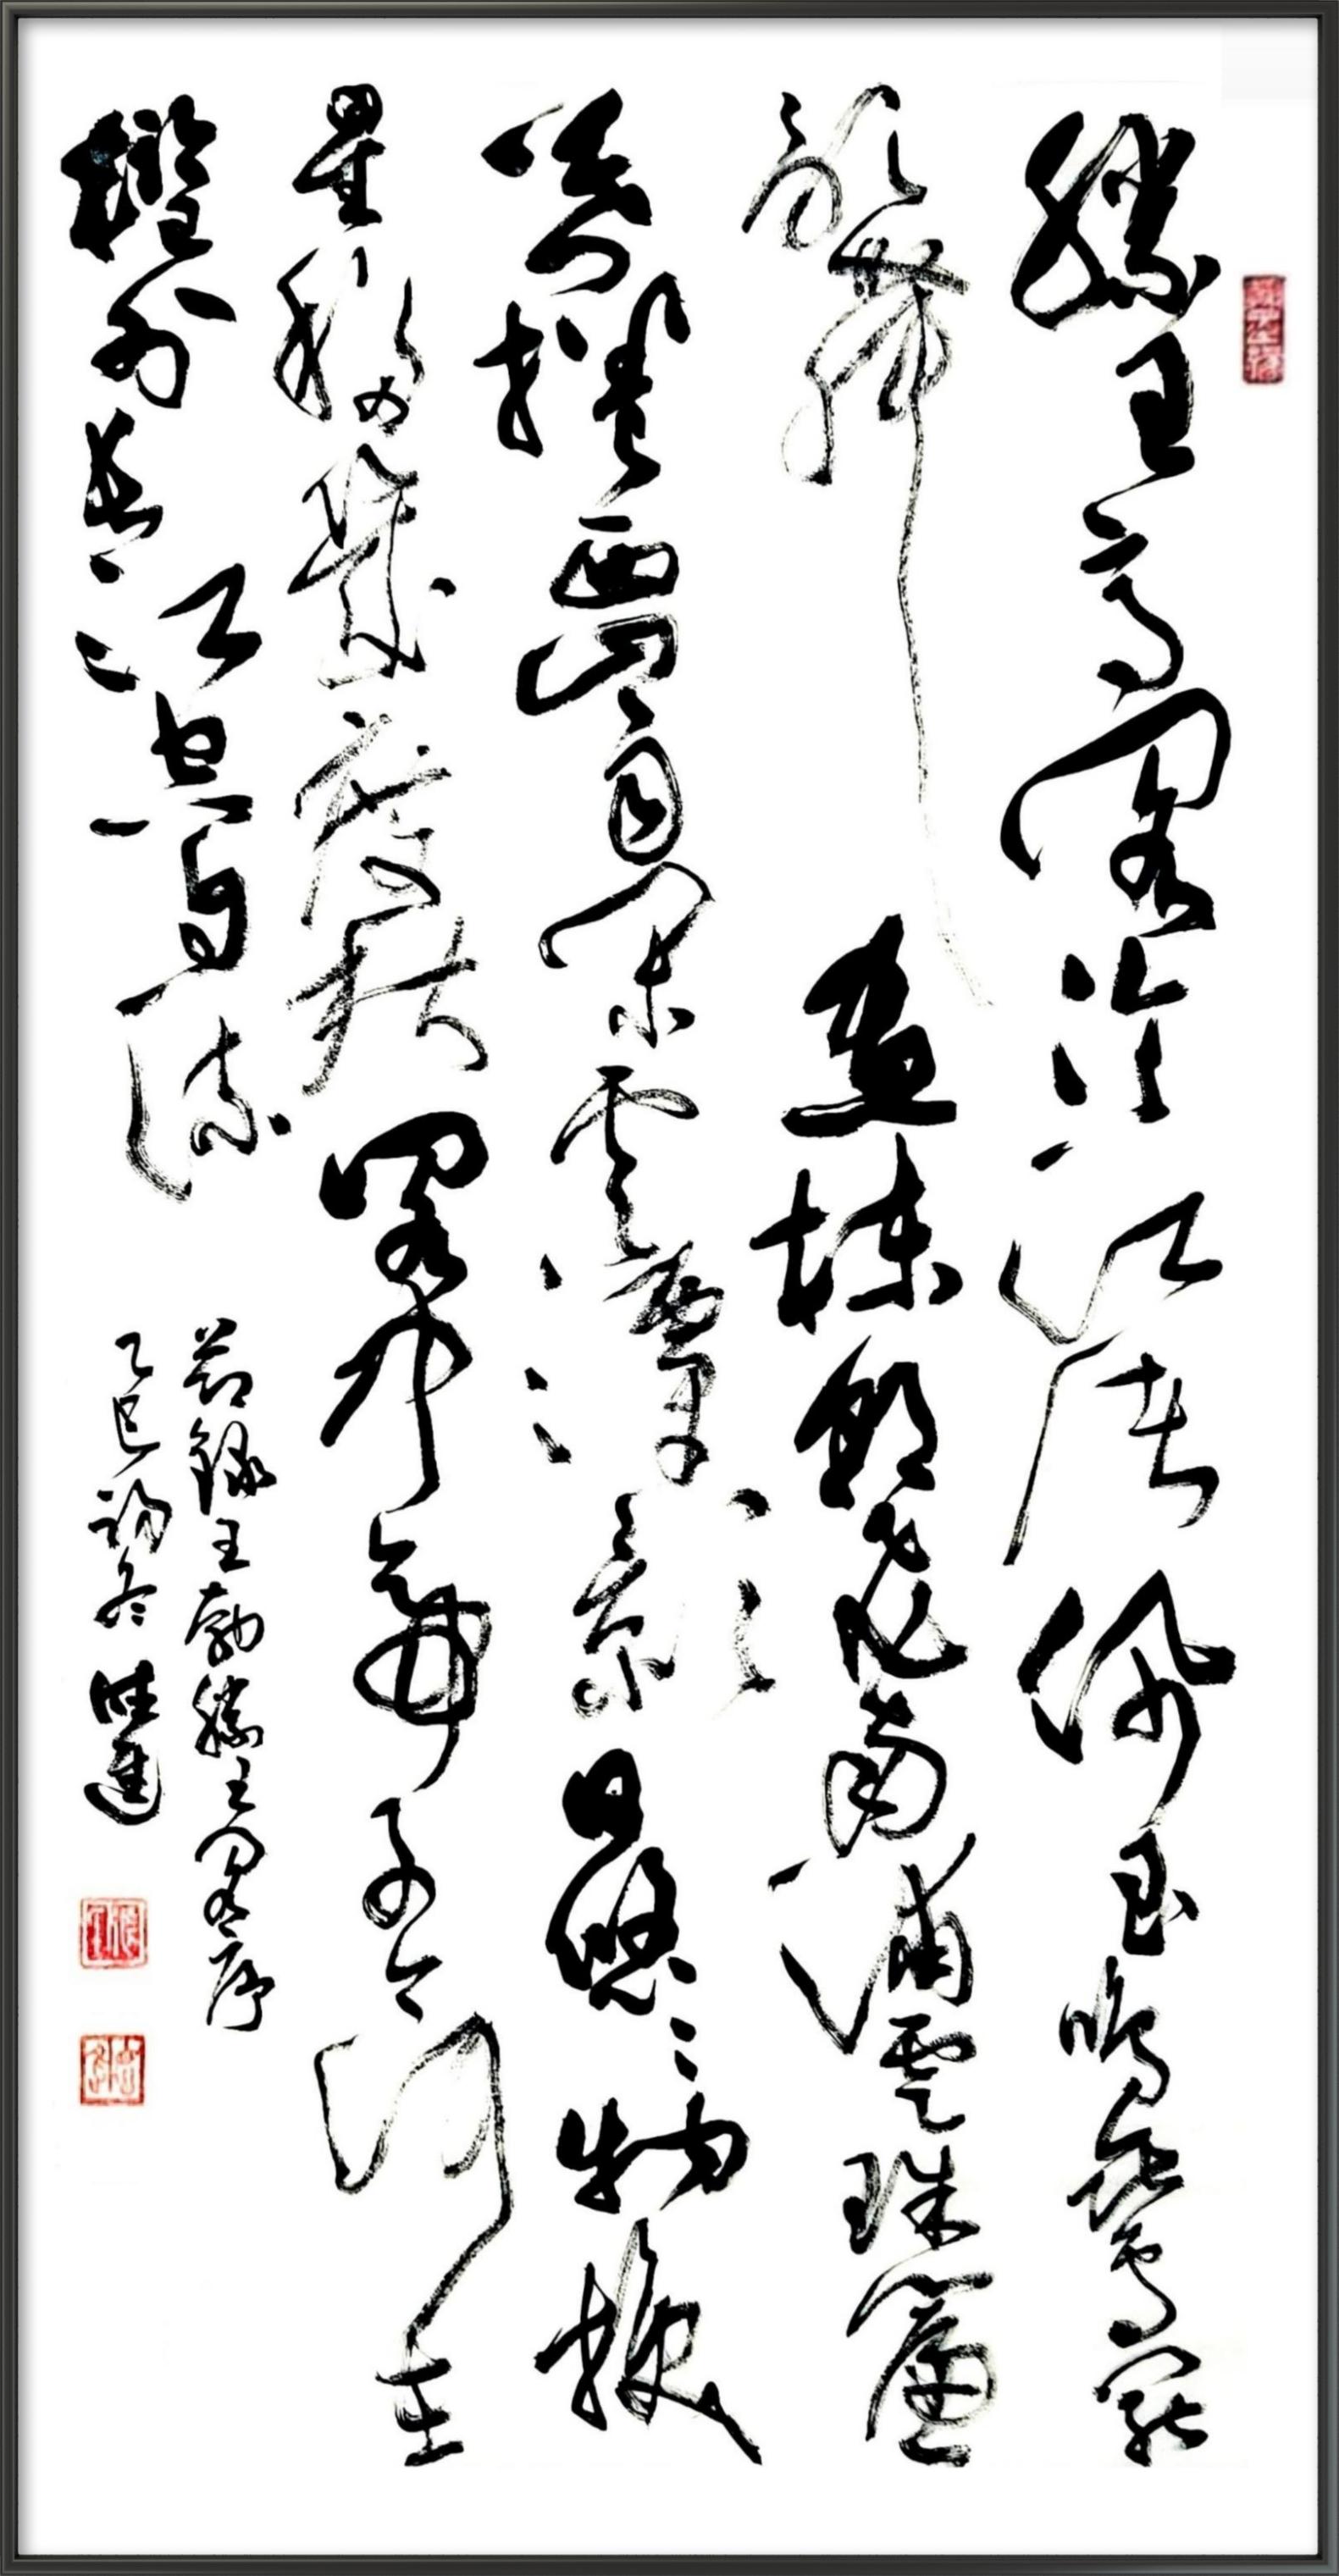 滕王高閣臨江渚佩玉鳴鸞罷
歌舞畫棟朝飛南浦雲珠簾
暮捲西山雨閑雲潭影日悠々物換
星移幾度秋閣中帝子今何在
檻外長江空自流
節錄王勃滕王閣序
乙巳初冬 進